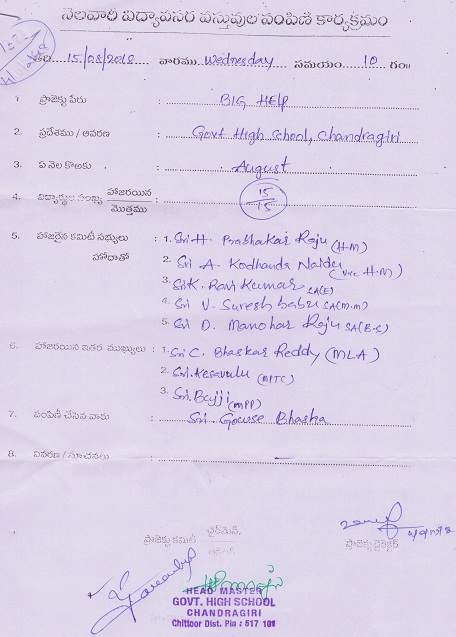 నెలవారీ విద్యావసర వస్తువుల పంపిణి కార్యక్రమం
తేది 15/08/2018 వారము Wednesday సమయం 10 గం॥
1. ప్రాజెక్టు పేరు : BIG HELP
2. ప్రదేశము / ఆవరణ : Govt High School, Chandragiri
3. ఏ నెల కొఱకు : August
4. విద్యార్థుల సంఖ్య హాజరయిన / మొత్తము : 15/15
5. హాజరైన కమిటీ సభ్యులు : 1. Sri H. Prabhakar Raju (H.M)
హోదాతో 2. Sri A. Kodhanda Naidu (Vice H.M)
3. Sri K. Ravi Kumar SA(E)
4. Sri V. Suresh babu SA(M.M)
5. Sri D. Manohar Raju SA(B.S)
6. హాజరయిన ఇతర ముఖ్యులు : 1. Sri C. Bhaskar Reddy (MLA)
2. Sri. Kesavulu (MPTC)
3. Sri. Bujji (MPP)
7. పంపిణీ చేసిన వారు : Sri. Gowse Bhasha
8. వివరణ / సూచనలు :
ప్రాజెక్టు కమిటీ ఛైర్మెన్,
ప్రాజెక్టు డైరెక్టర్
HEAD MASTER
GOVT. HIGH SCHOOL
CHANDRAGIRI
Chittoor Dist. Pin : 517 101